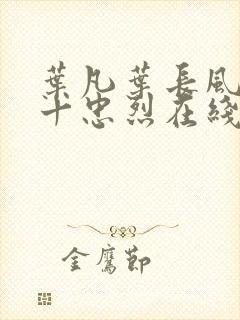 葉凡葉長風
十忠烈在綫
金鷹節